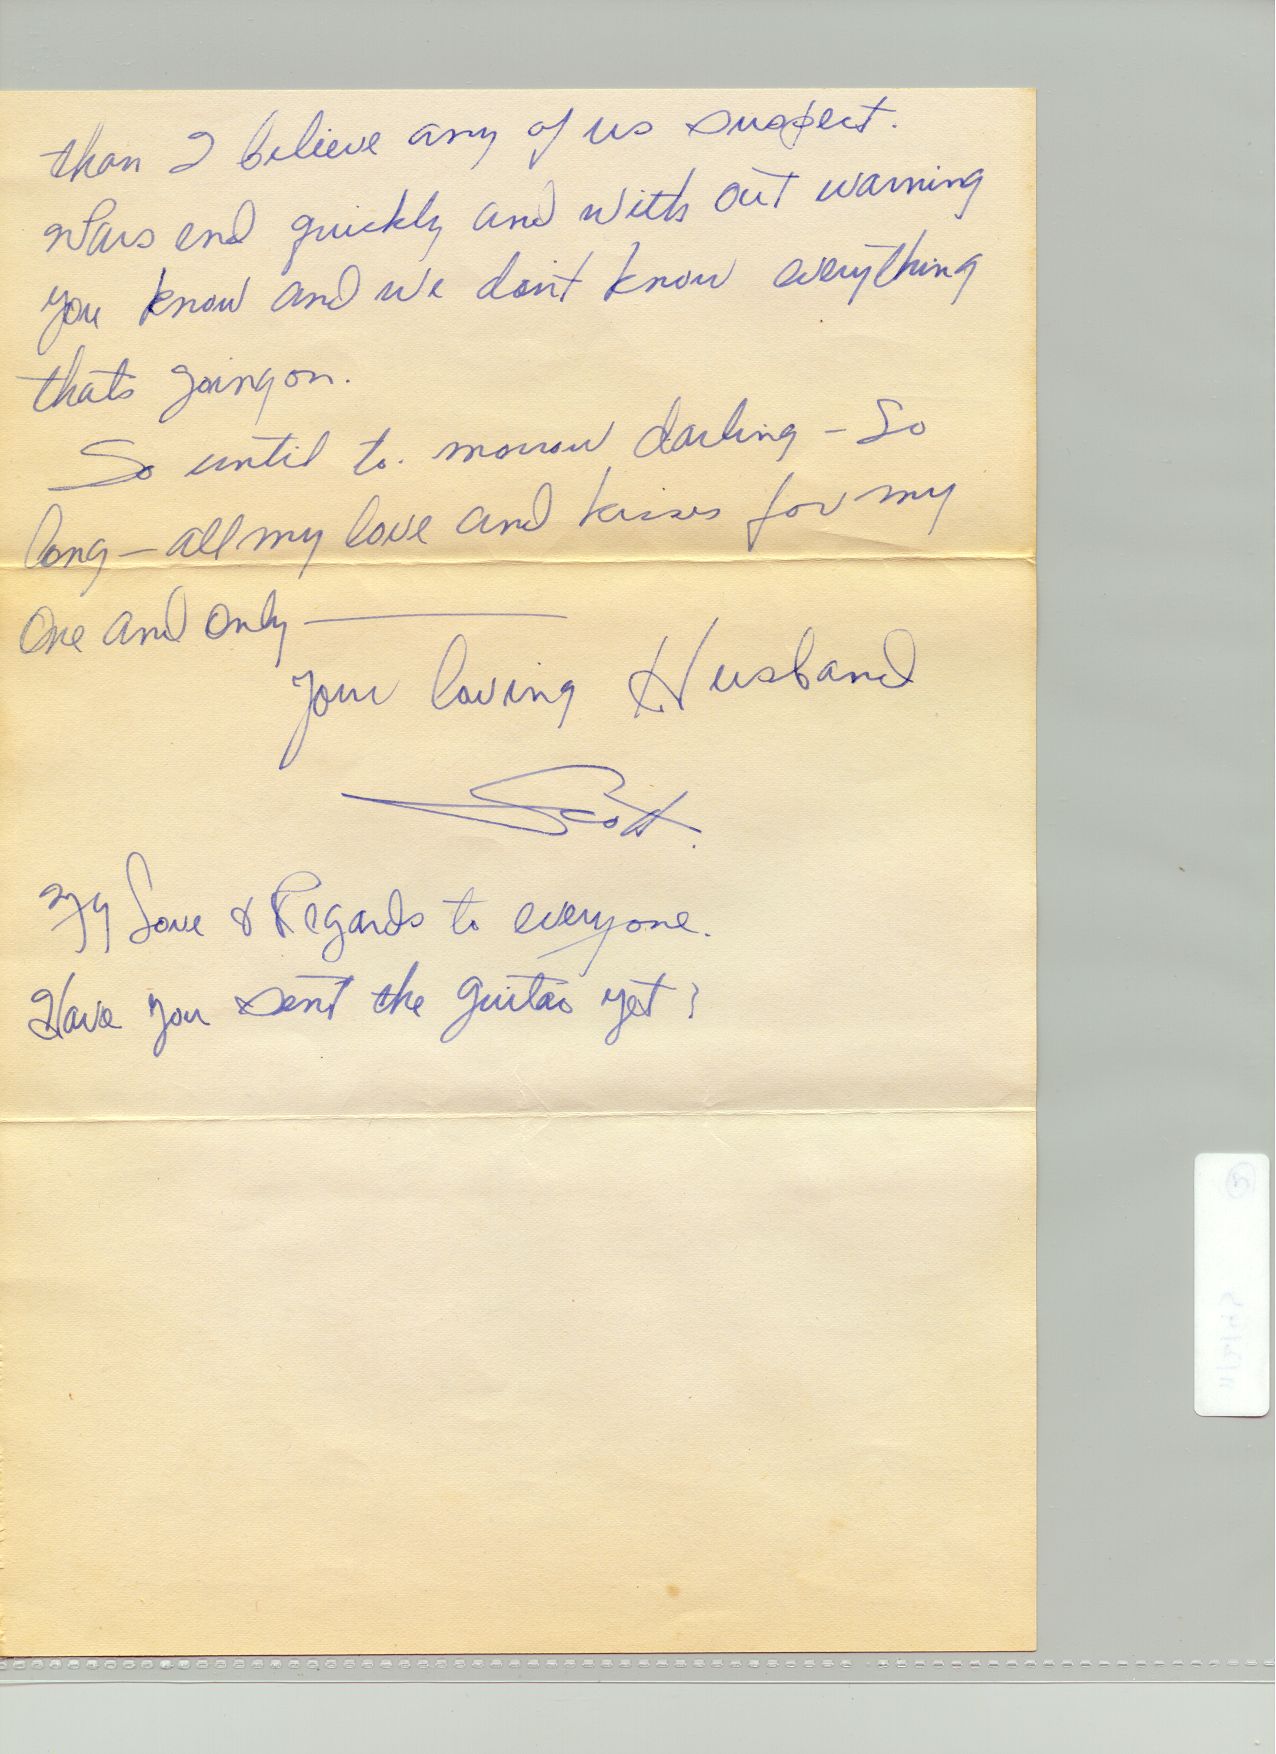 than I believe any of us suspect.
Wars end quickly and with out warning
you know and we don't know everything
thats going on.
So until to. morrow darling - So
long - all my love and kisses for my
One and Only —
Your loving Husband
Scott.
My Love & Regards to everyone.
Have you sent the guitar yet?